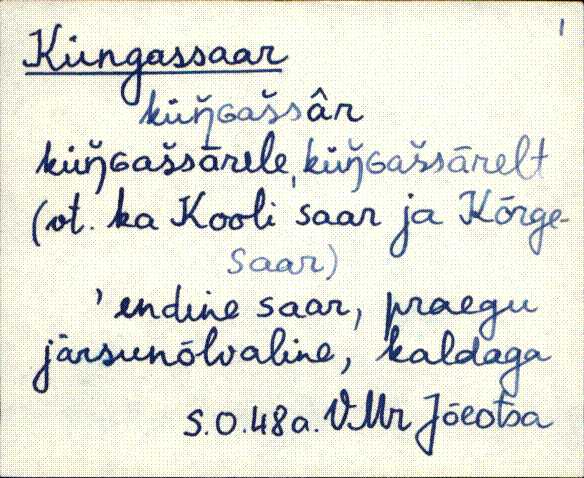 1
Küngassaar
küŋ̆ɢaššâr
küŋ̆ɢaššārele, küŋ̆ɢaššārelt
(vt. ka Kooli saar ja Kõrge-
saar)
' endine saar, praegu
järsunõlvaline, kaldaga
S.O.48a. V.Mr Jõeotsa